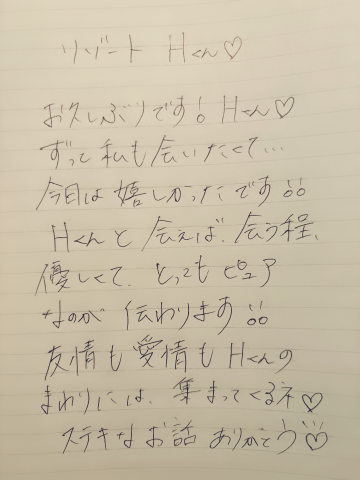 リゾート Hくん♡
お久しぶりです! Hくん♡
ずっと私も会いたくて...
今日は嬉しかったです!!
Hくんと会えば、会う程、
優しくて、とってもピュア
なのが伝わります!!
友情も愛情もHくんの
まわりには、集まってくるネ♡
ステキなお話ありがとう♡